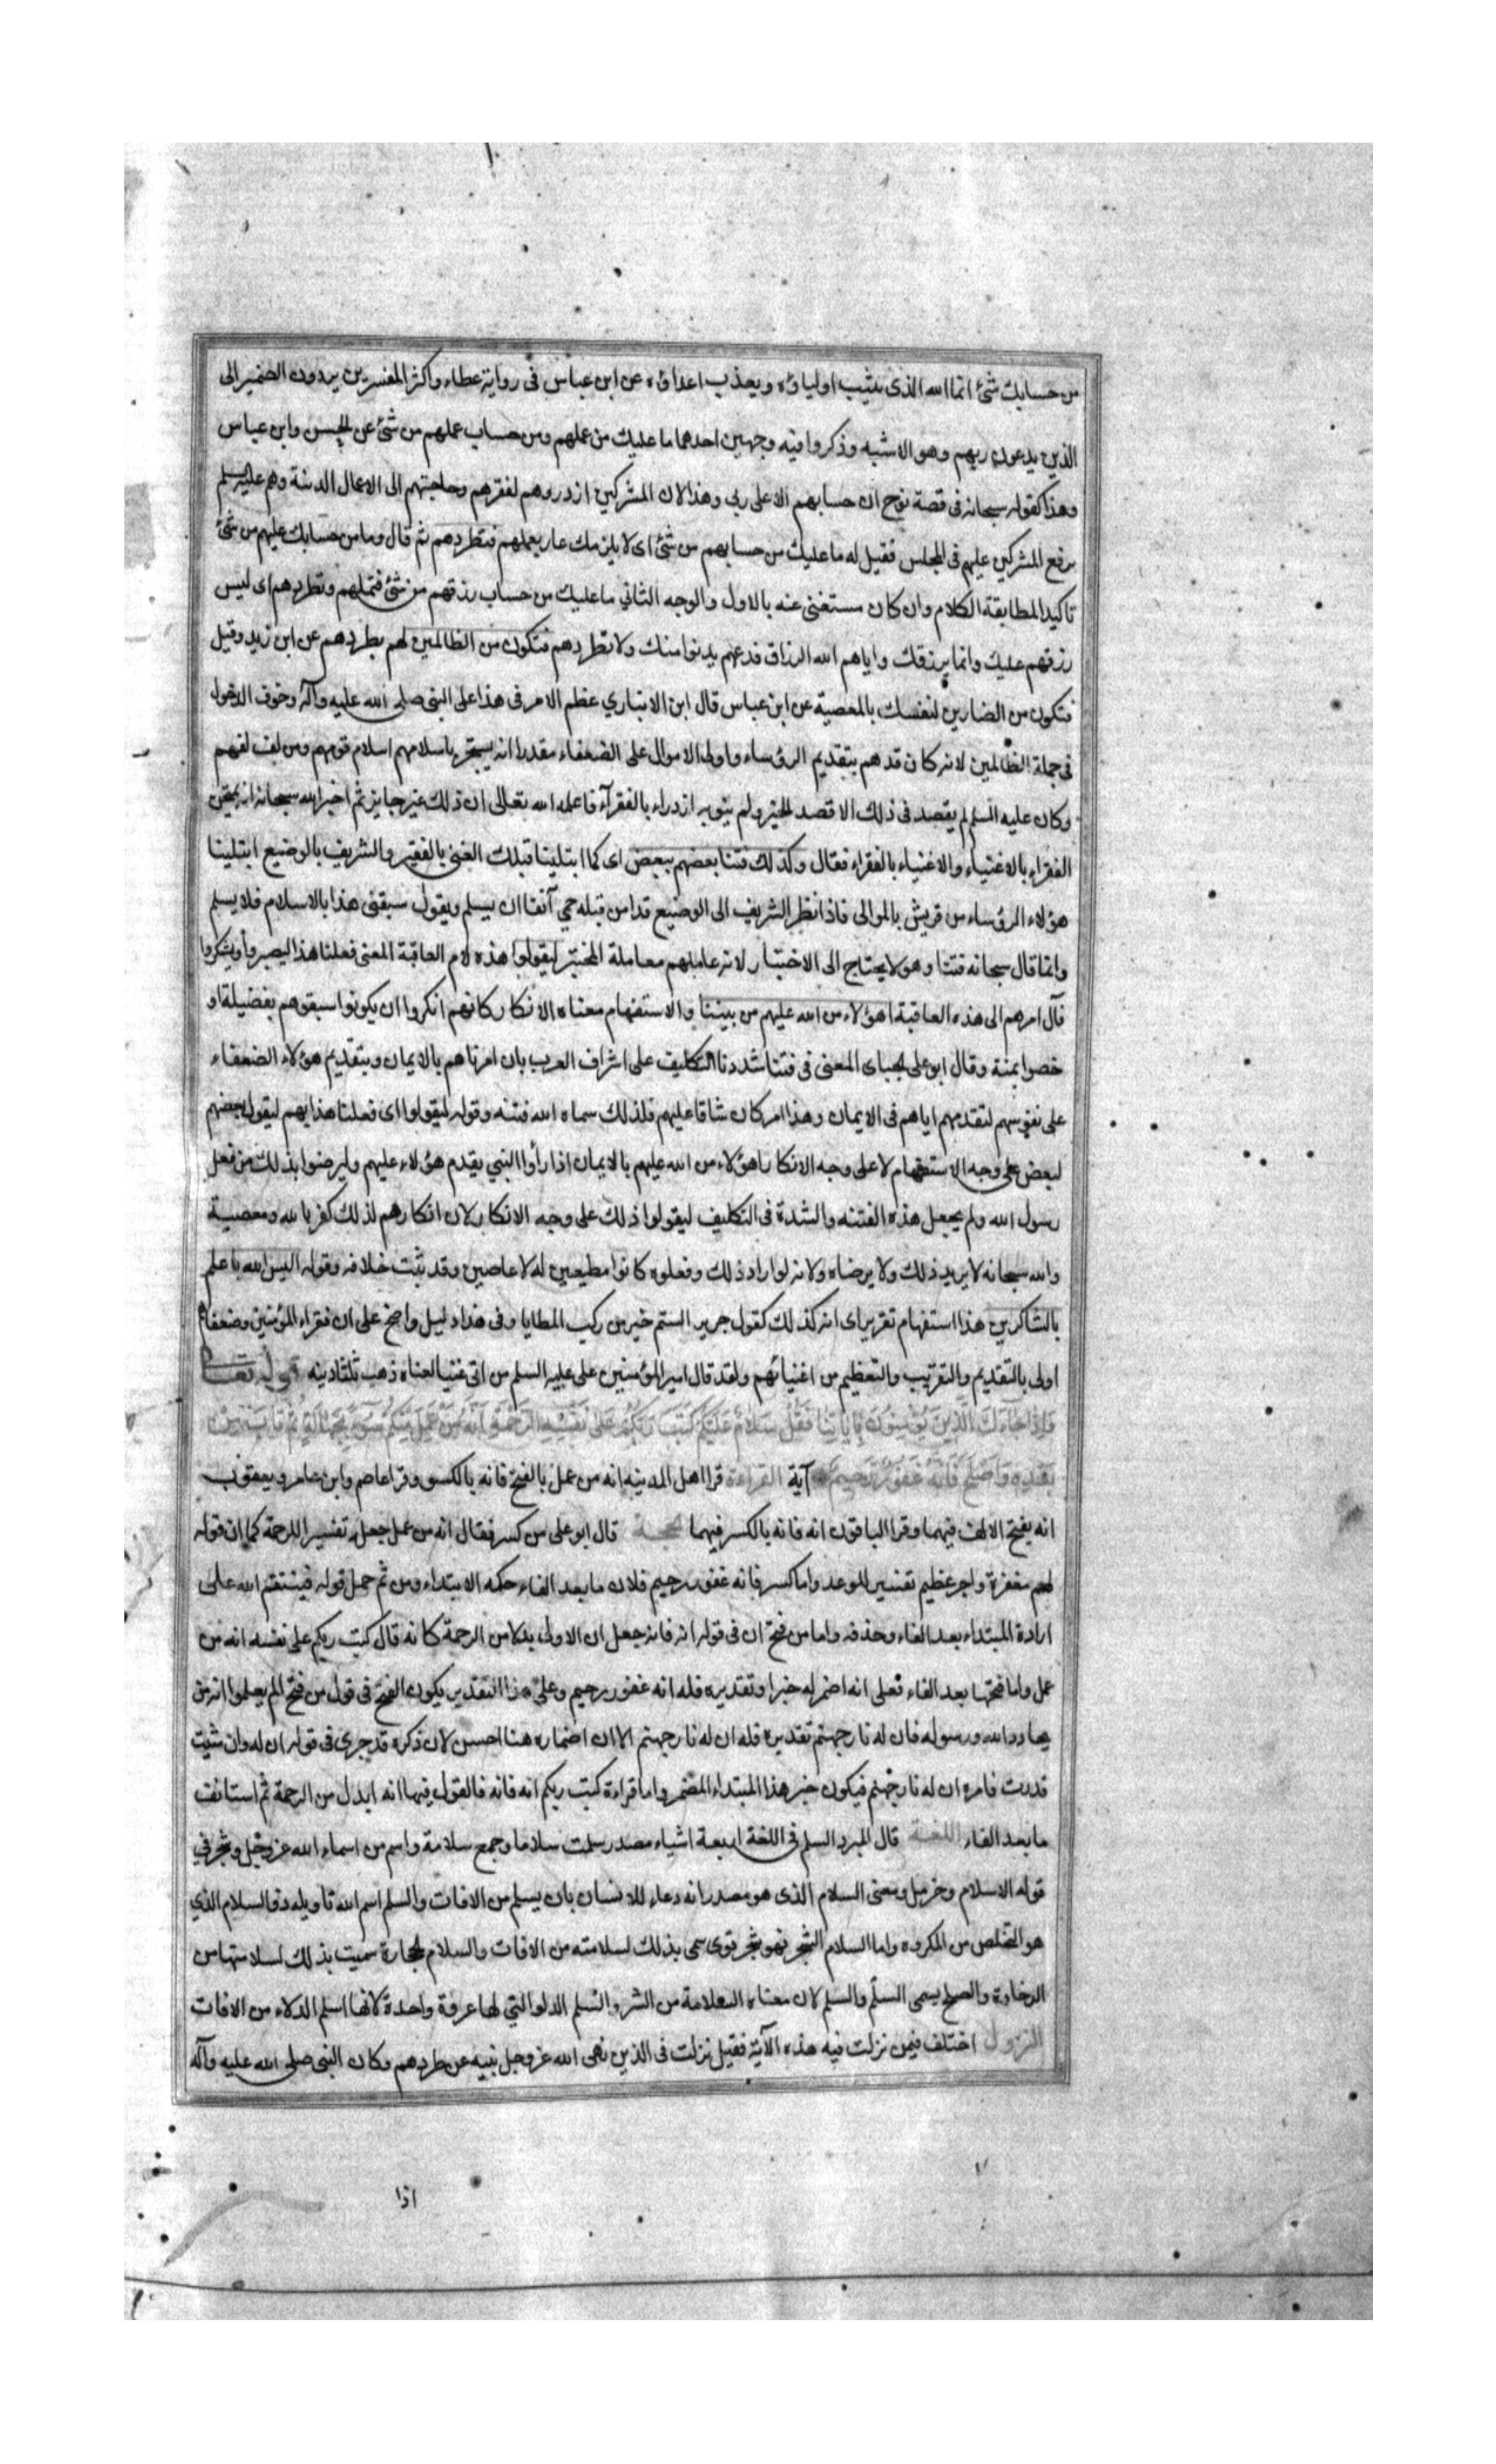 من حسابك شئ انما الله الذى يثيب اولياؤه ويعذب اعداؤه عن ابن عباس فى رواية عطاء واكثر المفسرين يردون الضمير الى
الذين يدعون ربهم وهو الاشبه وذكروا فيه وجهين احدهما ما عليك من عملهم ومن حساب عملهم من شئ عن الحسن وابن عباس
وهذا كقوله سبحانه فى قصة نوح ان حسابهم الا على ربى وهذا لان المشركين ازدروهم لفقرهم وحاجتهم الى الاعمال الدنية وهم عليه السلم
برفع المشركين عليهم فى المجلس فقيل له ما عليك من حسابهم من شئ اى لا يلزمك عار بعملهم فتطردهم ثم قال وما من حسابك عليهم من شئ
تاكيدا لمطابقة الكلام وان كان مستغنى عنه بالاول والوجه الثانى ما عليك من حساب رزقهم من شئ فتملهم وتطردهم اى ليس
رزقهم عليك وانما يرزقك واياهم الله الرزاق فدعهم يدنوا منك ولا تطردهم فتكون من الظالمين لهم بطردهم عن ابن زيد وقيل
فتكون من الضارين لنفسك بالمعصية عن ابن عباس قال ابن الانباري عظم الامر فى هذا على النبى صلى الله عليه وآله وخوف الدخول
فى جملة الظالمين لانه كان قد هم بتقديم الرؤساء واولى الاموال على الضعفاء مقدرا انه يستجر باسلامهم اسلام قومهم ومن لف لفهم
وكان عليه السلم لم يقصد فى ذلك الا قصد الخير ولم ينو به ازدراء بالفقرآء فاعلمه الله تعالى ان ذلك غير جايز ثم اخبر الله سبحانه انه يمتحن
الفقراء بالاغنياء والاغنياء بالفقراء فقال وكذلك فتنا بعضهم ببعض اى كما ابتلينا قبلك الغنى بالفقير والشريف بالوضيع ابتلينا
هؤلاء الرؤساء من قريش بالموالى فاذا نظر الشريف الى الوضيع قد امن قبله حمي آنفا ان يسلم ويقول سبقنى هذا بالاسلام فلا يسلم
وانما قال سبحانه فتنا وهو لا يحتاج الى الاختبار لانه عاملهم معاملة المختبر ليقولوا هذه لام العاقبة المعنى فعلنا هذا ليصبروا ويشكروا
فآل امرهم الى هذه العاقبة اهؤلاء من الله عليهم من بيننا والاستفهام معناه الانكار كانهم انكروا ان يكونوا سبقوهم بفضيلة او
خصوا بمنة وقال ابو على الجبائى المعنى فى فتنا شددنا التكليف على اشراف العرب بان امرناهم بالايمان وبتقديم هؤلاء الضعفاء
على نفوسهم لتقدمهم اياهم فى الايمان وهذا امر كان شاقا عليهم فلذلك سماه الله فتنه وقوله ليقولوا اى فعلنا هذا بهم ليقول بعضهم
لبعض على وجه الاستفهام لا على وجه الانكار اهؤلاء من الله عليهم بالايمان اذا رأوا النبي يقدم هؤلاء عليهم وليرضوا بذلك من فعل
رسول الله ولم يجعل هذه الفتنه والشدة فى التكليف ليقولوا ذلك على وجه الانكار لان انكارهم لذلك كفر بالله ومعصية
والله سبحانه لا يريد ذلك ولا يرضاه ولانه لو اراد ذلك وفعلوه كانوا مطيعين له لا عاصين وقد ثبت خلافه وقوله اليس الله باعلم
بالشاكرين هذا استفهام تقرير اى انه كذلك كقول جرير الستم خير من ركب المطايا وفى هذا دليل واضح على ان فقراء المؤمنين وضعفاهم
اولى بالتقديم والتقريب والتعظيم من اغنيائهم ولقد قال امير المؤمنين على عليه السلم من اتى غنيا لغناه ذهب ثلثا دينه قوله تعالى
وَإِذَا جَاءَكَ الَّذِينَ يُؤْمِنُونَ بِآيَاتِنَا فَقُلْ سَلَامٌ عَلَيْكُمْ كَتَبَ رَبُّكُمْ عَلَى نَفْسِهِ الرَّحْمَةَ أَنَّهُ مَنْ عَمِلَ مِنْكُمْ سُوءًا بِجَهَالَةٍ ثُمَّ تَابَ مِنْ
بَعْدِهِ وَأَصْلَحَ فَأَنَّهُ غَفُورٌ رَحِيمٌ آية القراءة قرا اهل المدينه انه من عمل بالفتح فانه بالكسر وقرا عاصم وابن عامر ويعقوب
انه بفتح الالف فيهما وقرا الباقون انه فانه بالكسر فيهما الحجة قال ابو على من كسر فقال انه من عمل جعله تفسيرا للرحمة كما ان قوله
لهم مغفرة واجر عظيم تفسير للوعد واما كسر فانه غفور رحيم فلان ما بعد الفاء حكمه الابتداء ومن ثم حمل قوله فينتقم الله على
ارادة المبتداء بعد الفاء وحذفه واما من فتح ان فى قوله انه فانه جعل ان الاولى بدلا من الرحمة كانه قال كتب ربكم على نفسه انه من
عمل واما فتحها بعد الفاء فعلى انه اضمر له خبرا وتقديره فله انه غفور رحيم وعلى هذا التقدير يكون الفتح فى قول من فتح الم يعلموا انه من
يحادد الله ورسوله فان له نار جهنم تقديره فله ان له نار جهنم الا ان اضماره هنا احسن لان ذكره قد جرى فى قوله ان له وان شئت
قدرت فامره ان له نار جهنم فيكون خبر هذا المبتداء المضمر واما قراءة كتب ربكم انه فانه فالقول فيها انه ابدل من الرحمة ثم استانف
ما بعد الفاء اللغة قال المبرد السلم فى اللغة اربعة اشياء مصدر سلمت سلاما وجمع سلامة واسم من اسماء الله عز وجل وشجر في
قوله الا سلام وحرمل ومعنى السلام الذى هو مصدر انه دعاء للانسان بان يسلم من الافات والسلم اسم الله تاويله ذو السلام الذي
هو التخلص من المكروه واما السلام الشجر فهو شجر قوى سمى بذلك لسلامته من الافات والسلام الحجارة سميت بذلك لسلامتها من
الرخاوة والصلح يسمى السلم والسلم لان معناه السلامة من الشر والسلم الدلو التي لها عروة واحدة لانها اسلم الدلاء من الافات
النزول اختلف فيمن نزلت فيه هذه الآية فقيل نزلت فى الذين نهى الله عز وجل نبيه عن طردهم وكان النبى صلى الله عليه وآله
اذا